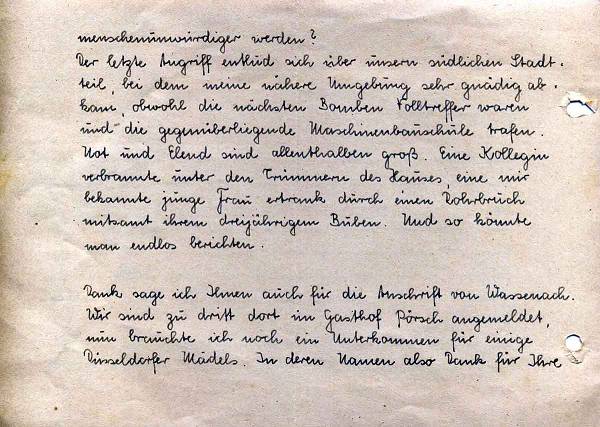 menschenunwürdiger werden?
Der letzte Angriff entlud sich über unsern südlichen Stadt-
teil, bei dem meine nähere Umgebung sehr gnädig ab-
kam, obwohl die nächsten Bomben Volltreffer waren
und die gegenüberliegende Maschinenbauschule trafen.
Not und Elend sind allenthalben groß. Eine Kollegin
verbrannte unter den Trümmern des Hauses, eine mir
bekannte junge Frau ertrank durch einen Rohrbruch
mitsamt ihrem dreijährigem Buben. Und so könnte
man endlos berichten.
Dank sage ich Ihnen auch für die Anschrift von Wassenach.
Wir sind zu dritt dort im Gasthof Pörsch angemeldet,
nun brauchte ich noch ein Unterkommen für einige
Düsseldorfer Mädels. In deren Namen also Dank für Ihre